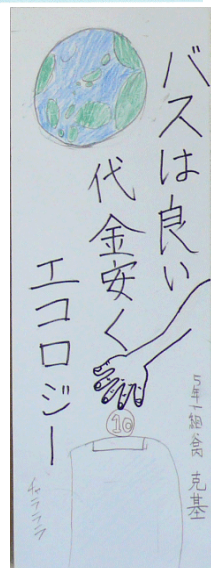 バスは良い
代金安く
エコロジー
5年1組 克基
10
チャララララ